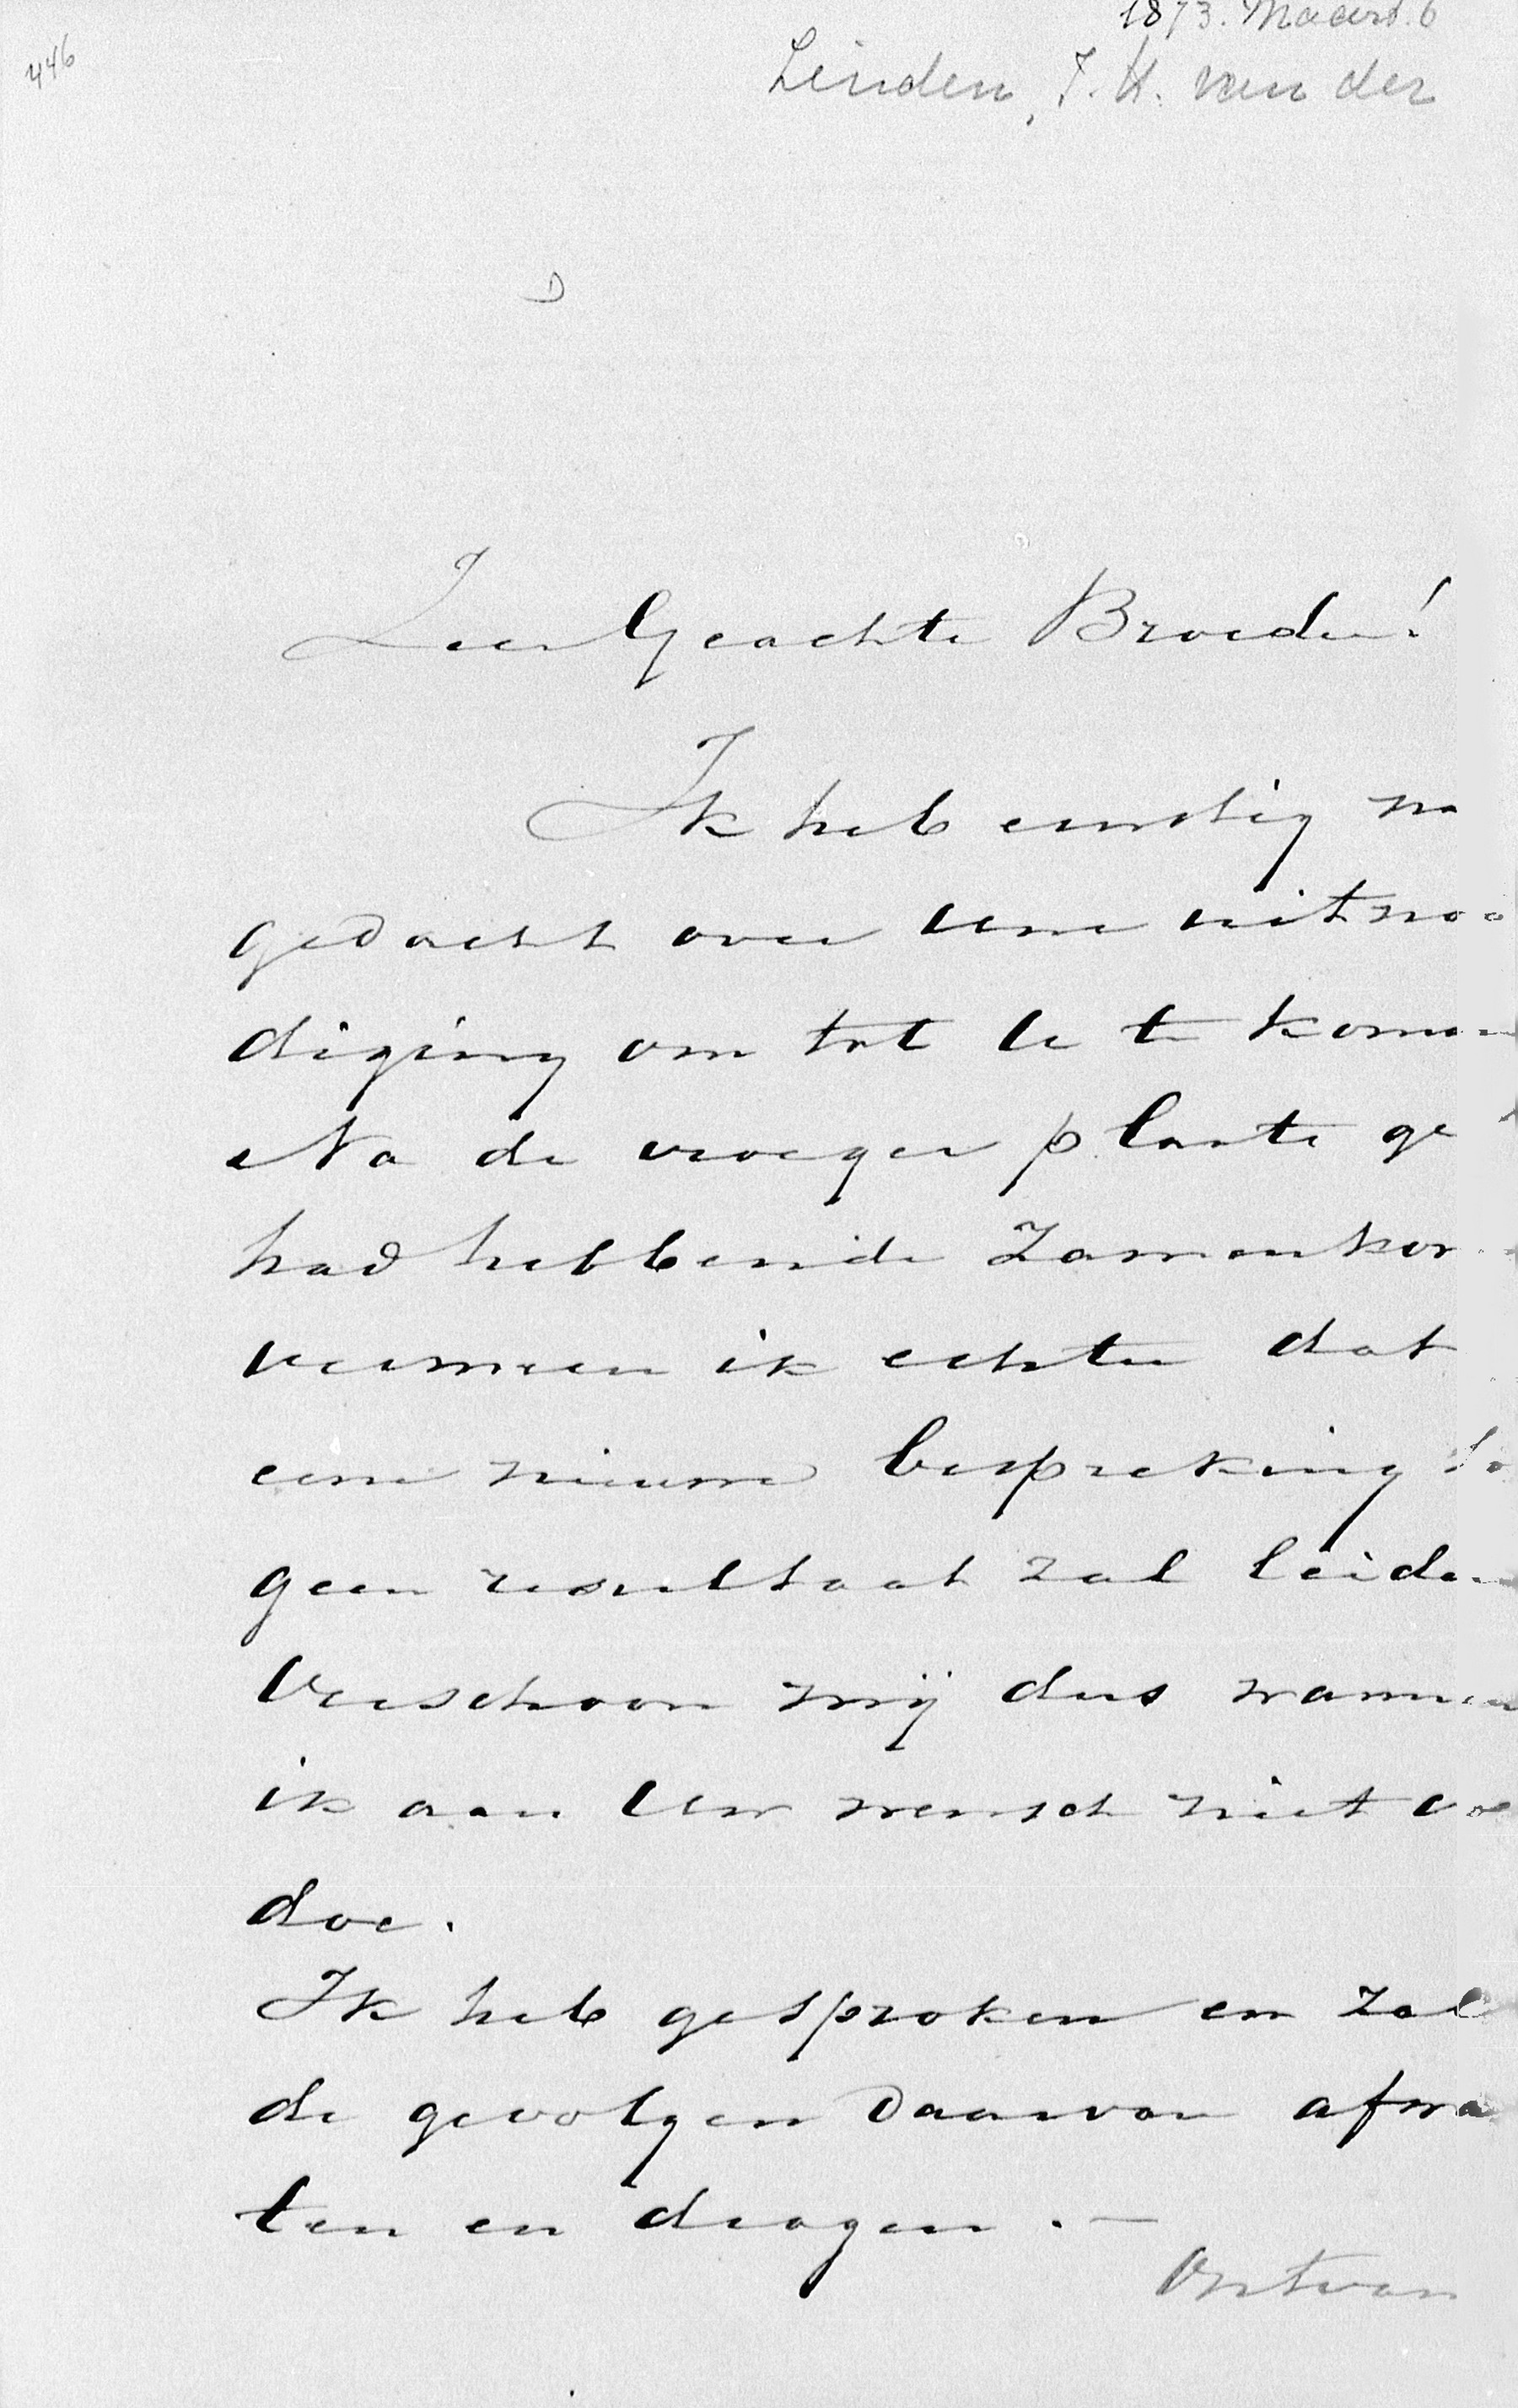 1873. Maart. 6
446
Linden, J. H. van der
D
Zeer Geachte Broeder!
Ik heb ernstig na
gedacht over Uwe uitnoo
diging om tot U te komen
Na de vroeger plaats ge
had hebbende zamenkom
vermeen ik echter dat
eene nieuwe bespreking to
geen resultaat zal leiden
Verschoon mij dus wanneer
ik aan Uw wensch niet vol
doe.
Ik heb gesproken en zal
de gevolgen daarvan afwa
ten en dragen. —
Ontvan